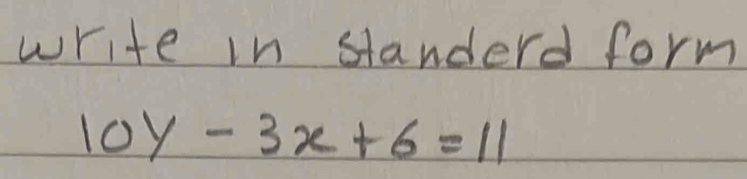 write in standerd form
10y - 3x + 6 = 11